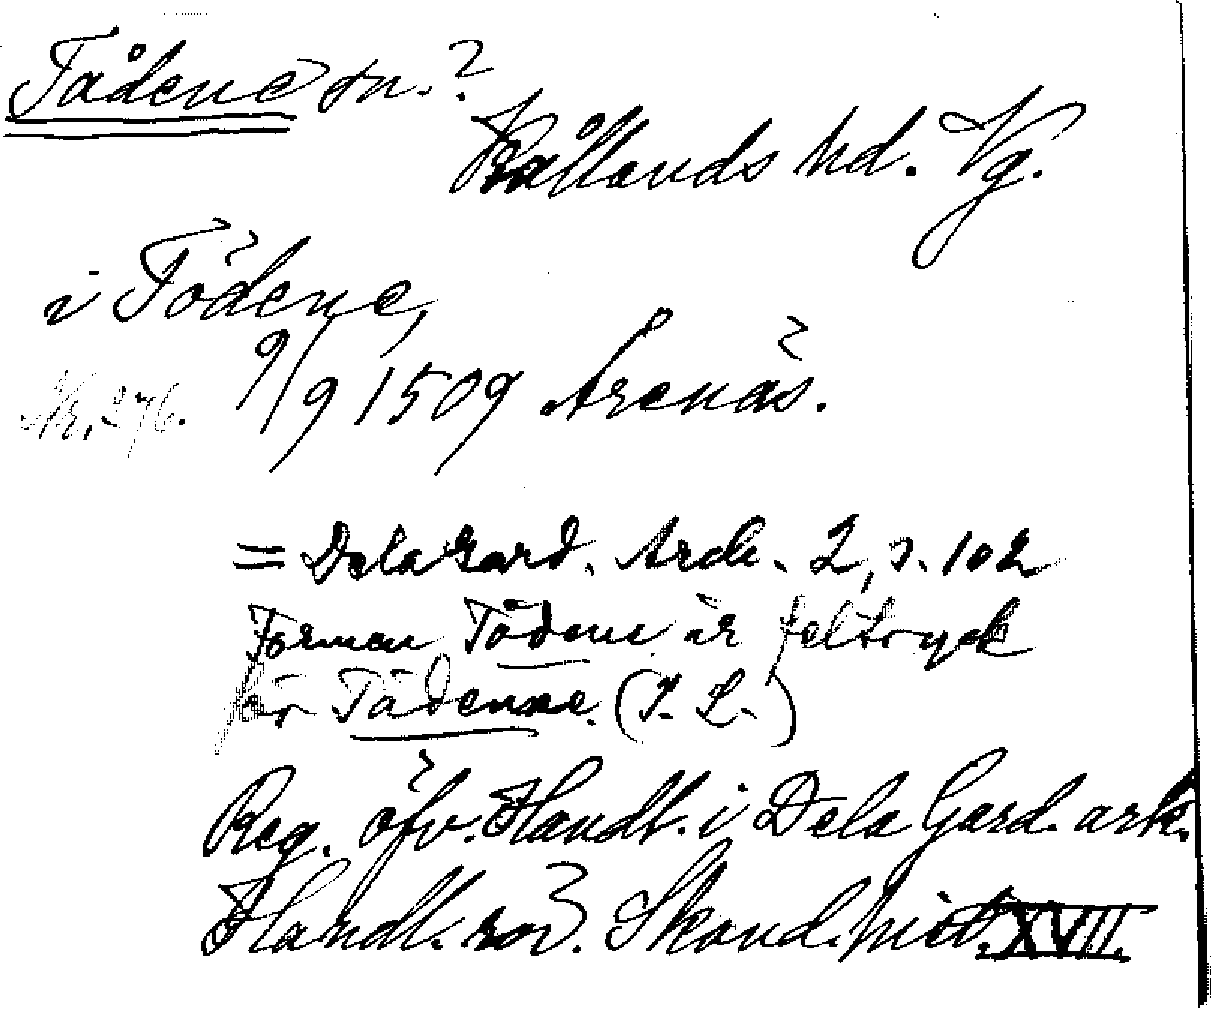 Tådene sn.?
Kållands hd. Vg.
i Tödene,
9/9 1509 Årenäs.
Nr. 276.
= Dela Gard. Ark. 2, s. 102
Formen Tödene är feltryck
för Tådenne. (I. L.)
Reg. öfv. Handl. i Dela Gard. ark.
Handl. rör. Skand. hist. XVII.